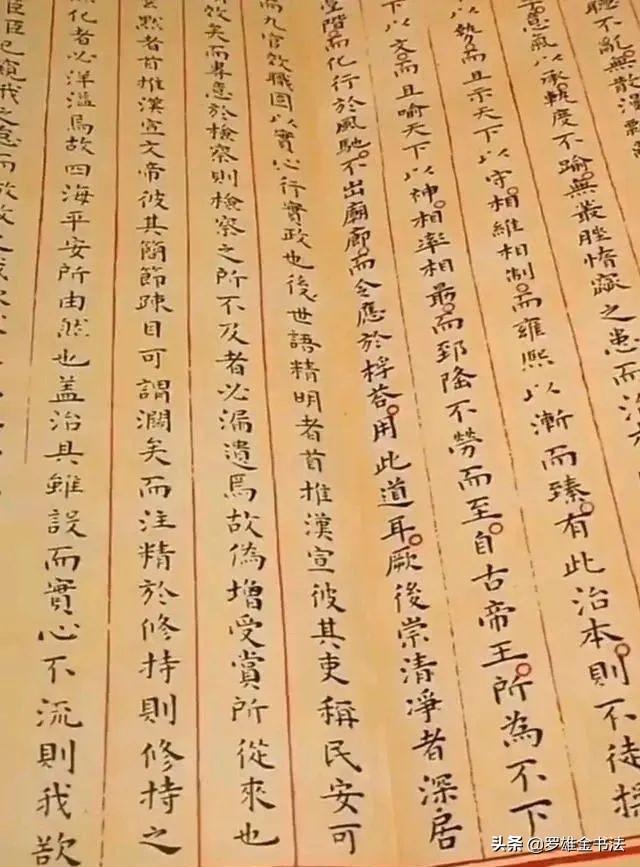 聽不亂無散漫
意氣以承軌度不踰無叢脞惰窳之患而治本
以勢而且示天下以守相維相制而雍熙以漸而臻有此治本則不徒操
下以文而且喻天下以神相率相最而郅隆不勞而至自古帝王所為不下
堂階而化行於風馳不出廟廊而令應於桴荅用此道耳厥後崇清淨者深居
九官效職固以實心行實政也後世語精明者首推漢宣彼其吏稱民安可
效矣而專意於檢察則檢察之所不及者必漏遺焉故偽增受賞所從來也
玄默者首推漢宣文帝彼其簡節疎目可謂濶矣而注精於修持則修持之
化者必洋溢焉故四海平安所由然也盖治具雖設而實心不流則我欲
臣臣已窺我之怠而
头条 @罗雄金书法